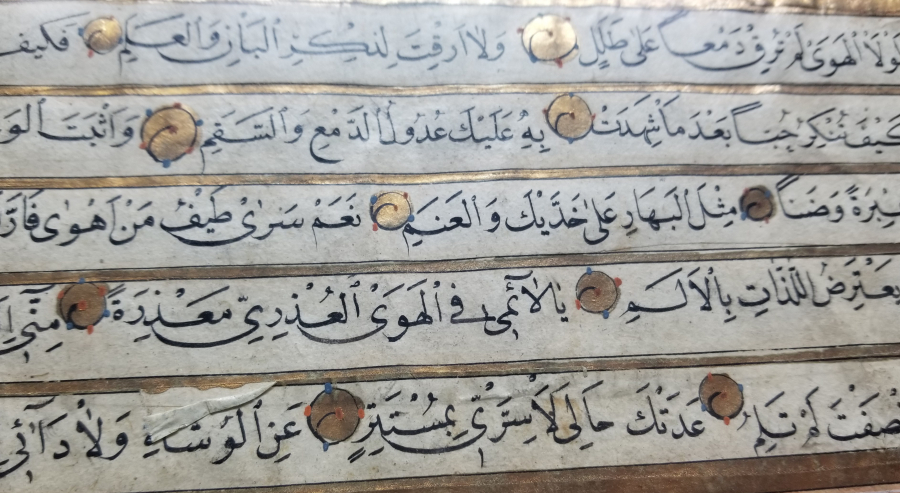 لَوْلَا الْهَوَىٰ لَمْ تُرِقْ دَمْعاً عَلَىٰ طَلَلٍ وَلَا اَرِقْتَ لِذِكْرِ الْبَانِ وَالْعَلَمِ فَكَيْفَ
كَيْفَ تُنْكِرُ حُبّاً بَعْدَ مَا شَهِدَتْ بِهِ عَلَيْكَ عُدُولُ الدَّمْعِ وَالسَّقَمِ وَاَثْبَتَ
عَبْرَةً وَضَناً مِثْلَ الْبَهَارِ عَلَىٰ خَدَّيْكَ وَالْعَنَمِ نَعَمْ سَرَىٰ طَيْفُ مَنْ اَهْوَىٰ
يَعْتَرِضُ اللَّذَّاتِ بِالْاَلَمِ يَا لَائِمِي فِي الْهَوَى الْعُذْرِيِّ مَعْذِرَةً مِنِّي
اَنْصَفْتَ لَمْ تَلُمِ عَدَتْكَ حَالِيَ لَا سِرِّي بِمُسْتَتِرٍ عَنِ الْوُشَاةِ وَلَا دَائِي